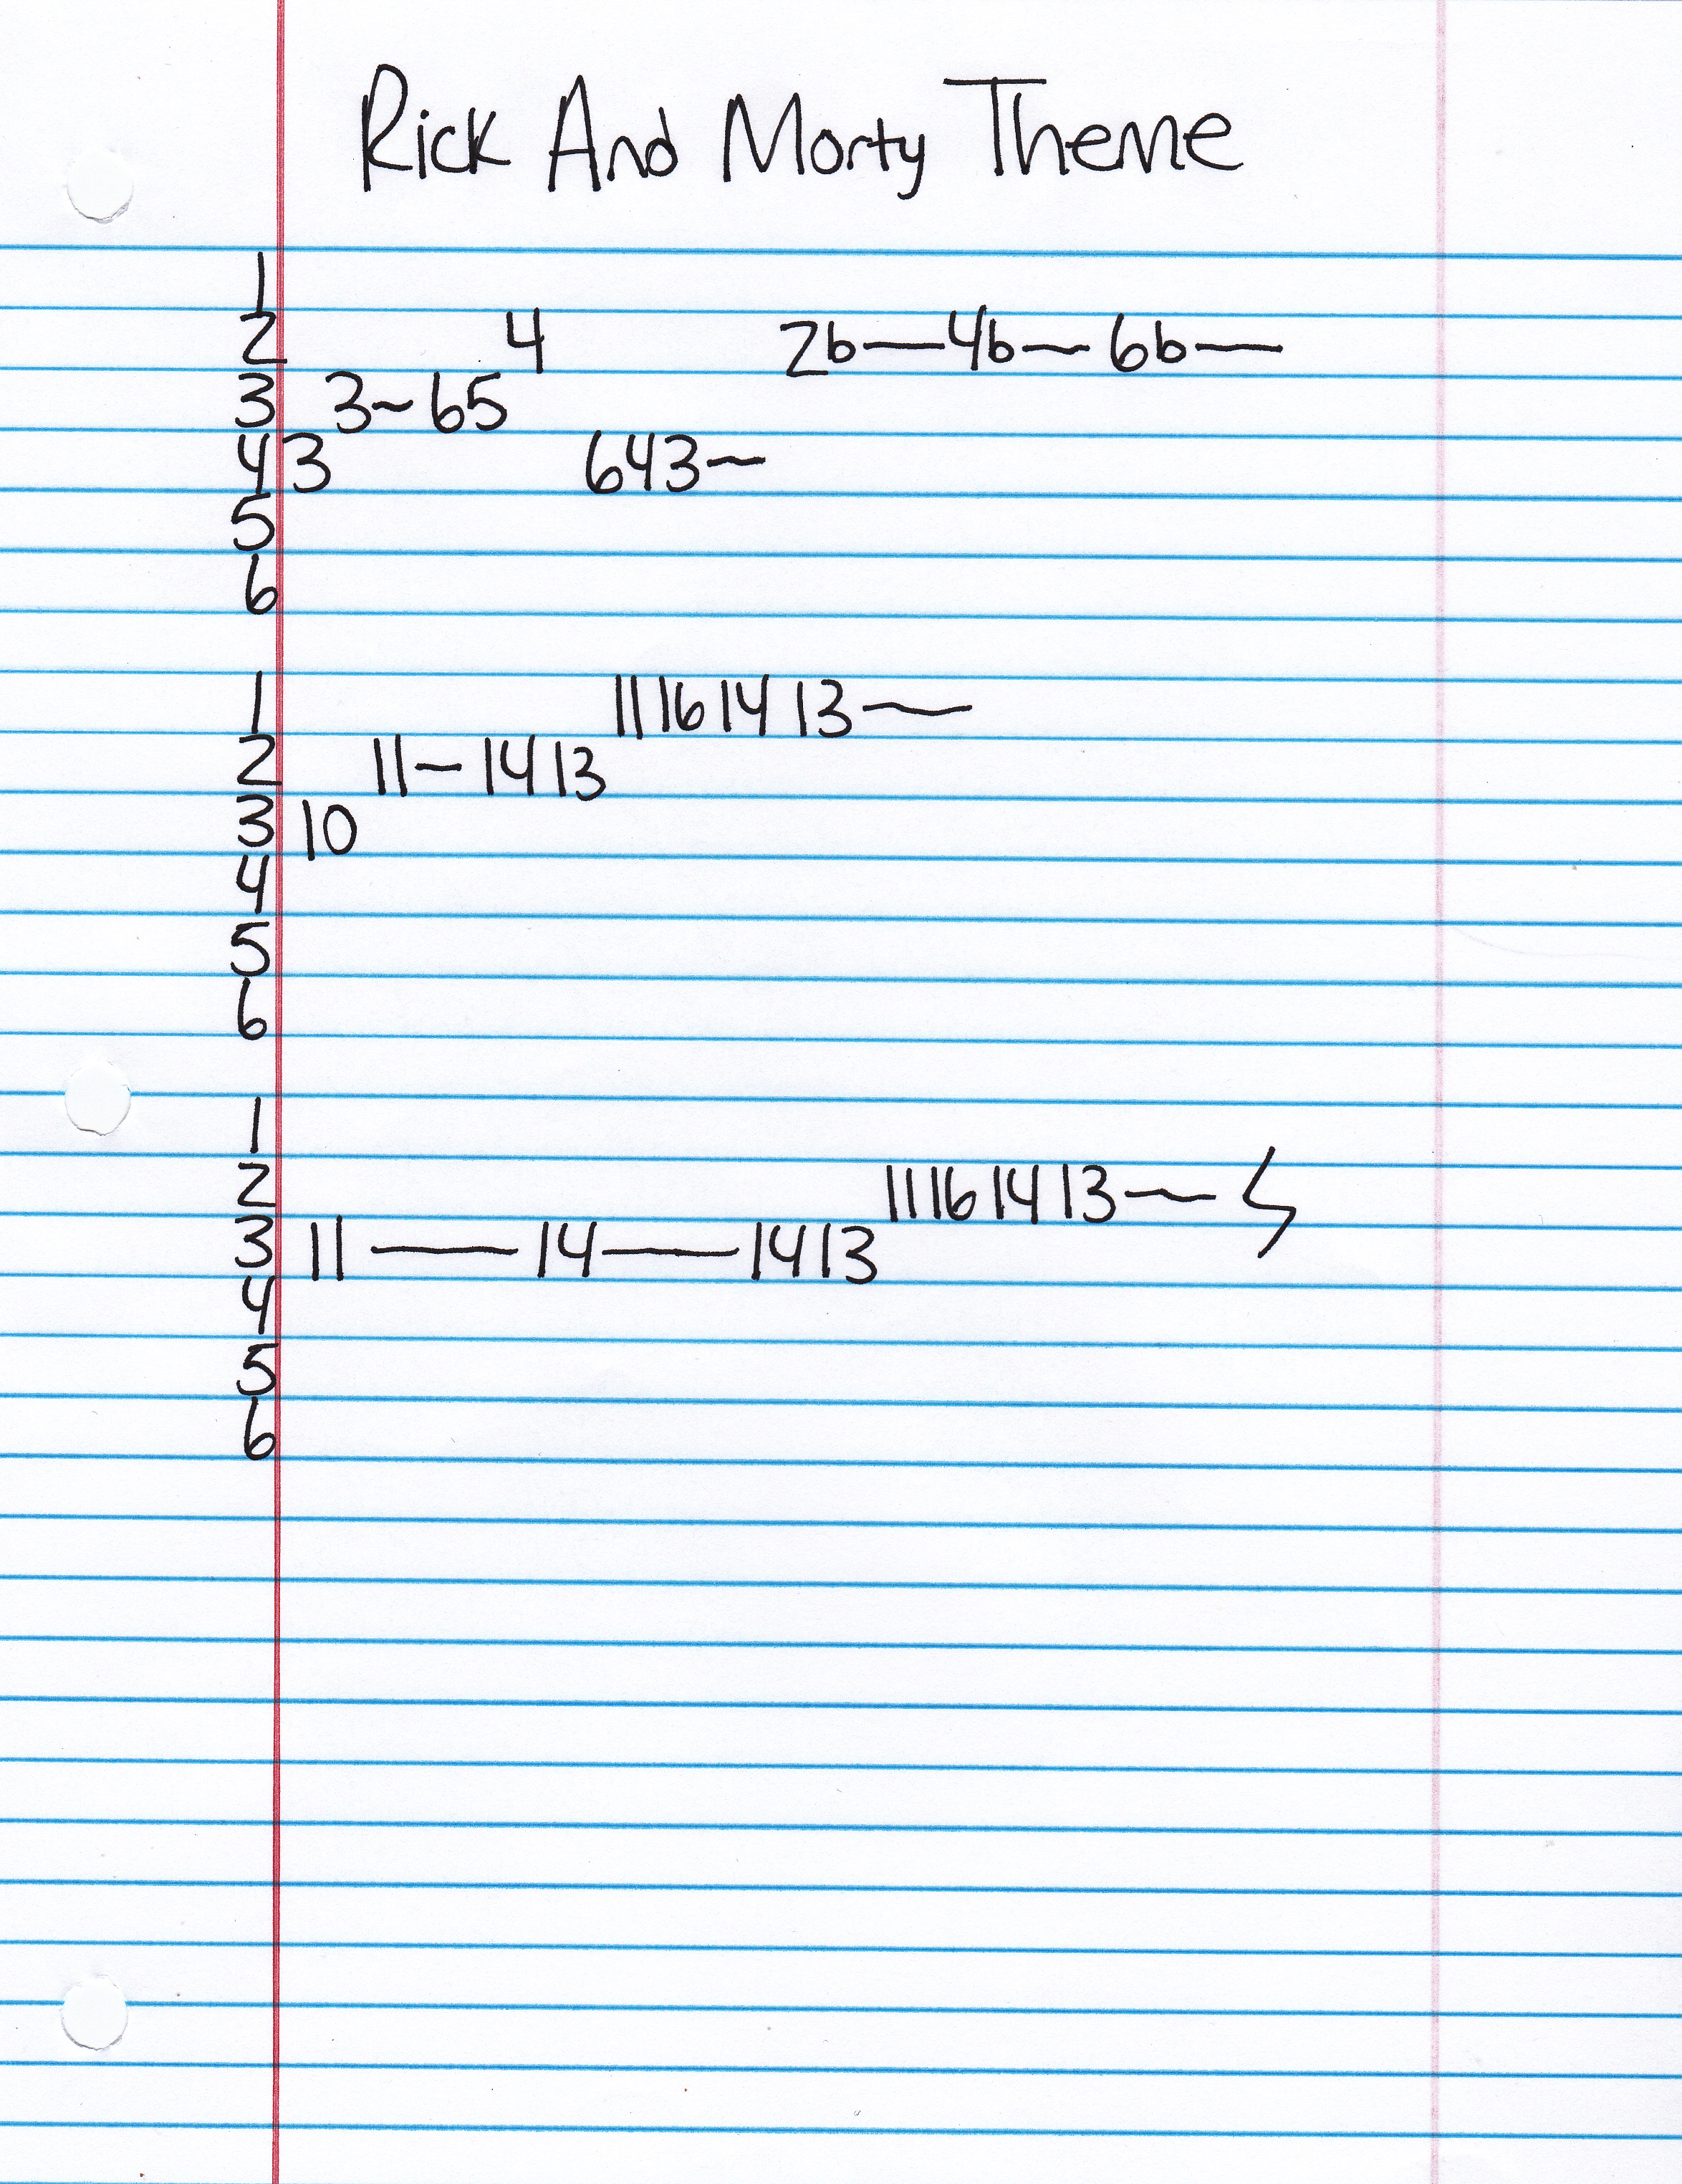 Rick And Morty Theme
1
2 4 2b—4b—6b—
3 3~65
4 3 643~
5
6
1 11 16 14 13—
2 11-14 13
3 10
4
5
6
1
2 11 16 14 13—
3 11—14—14 13
4
5
6